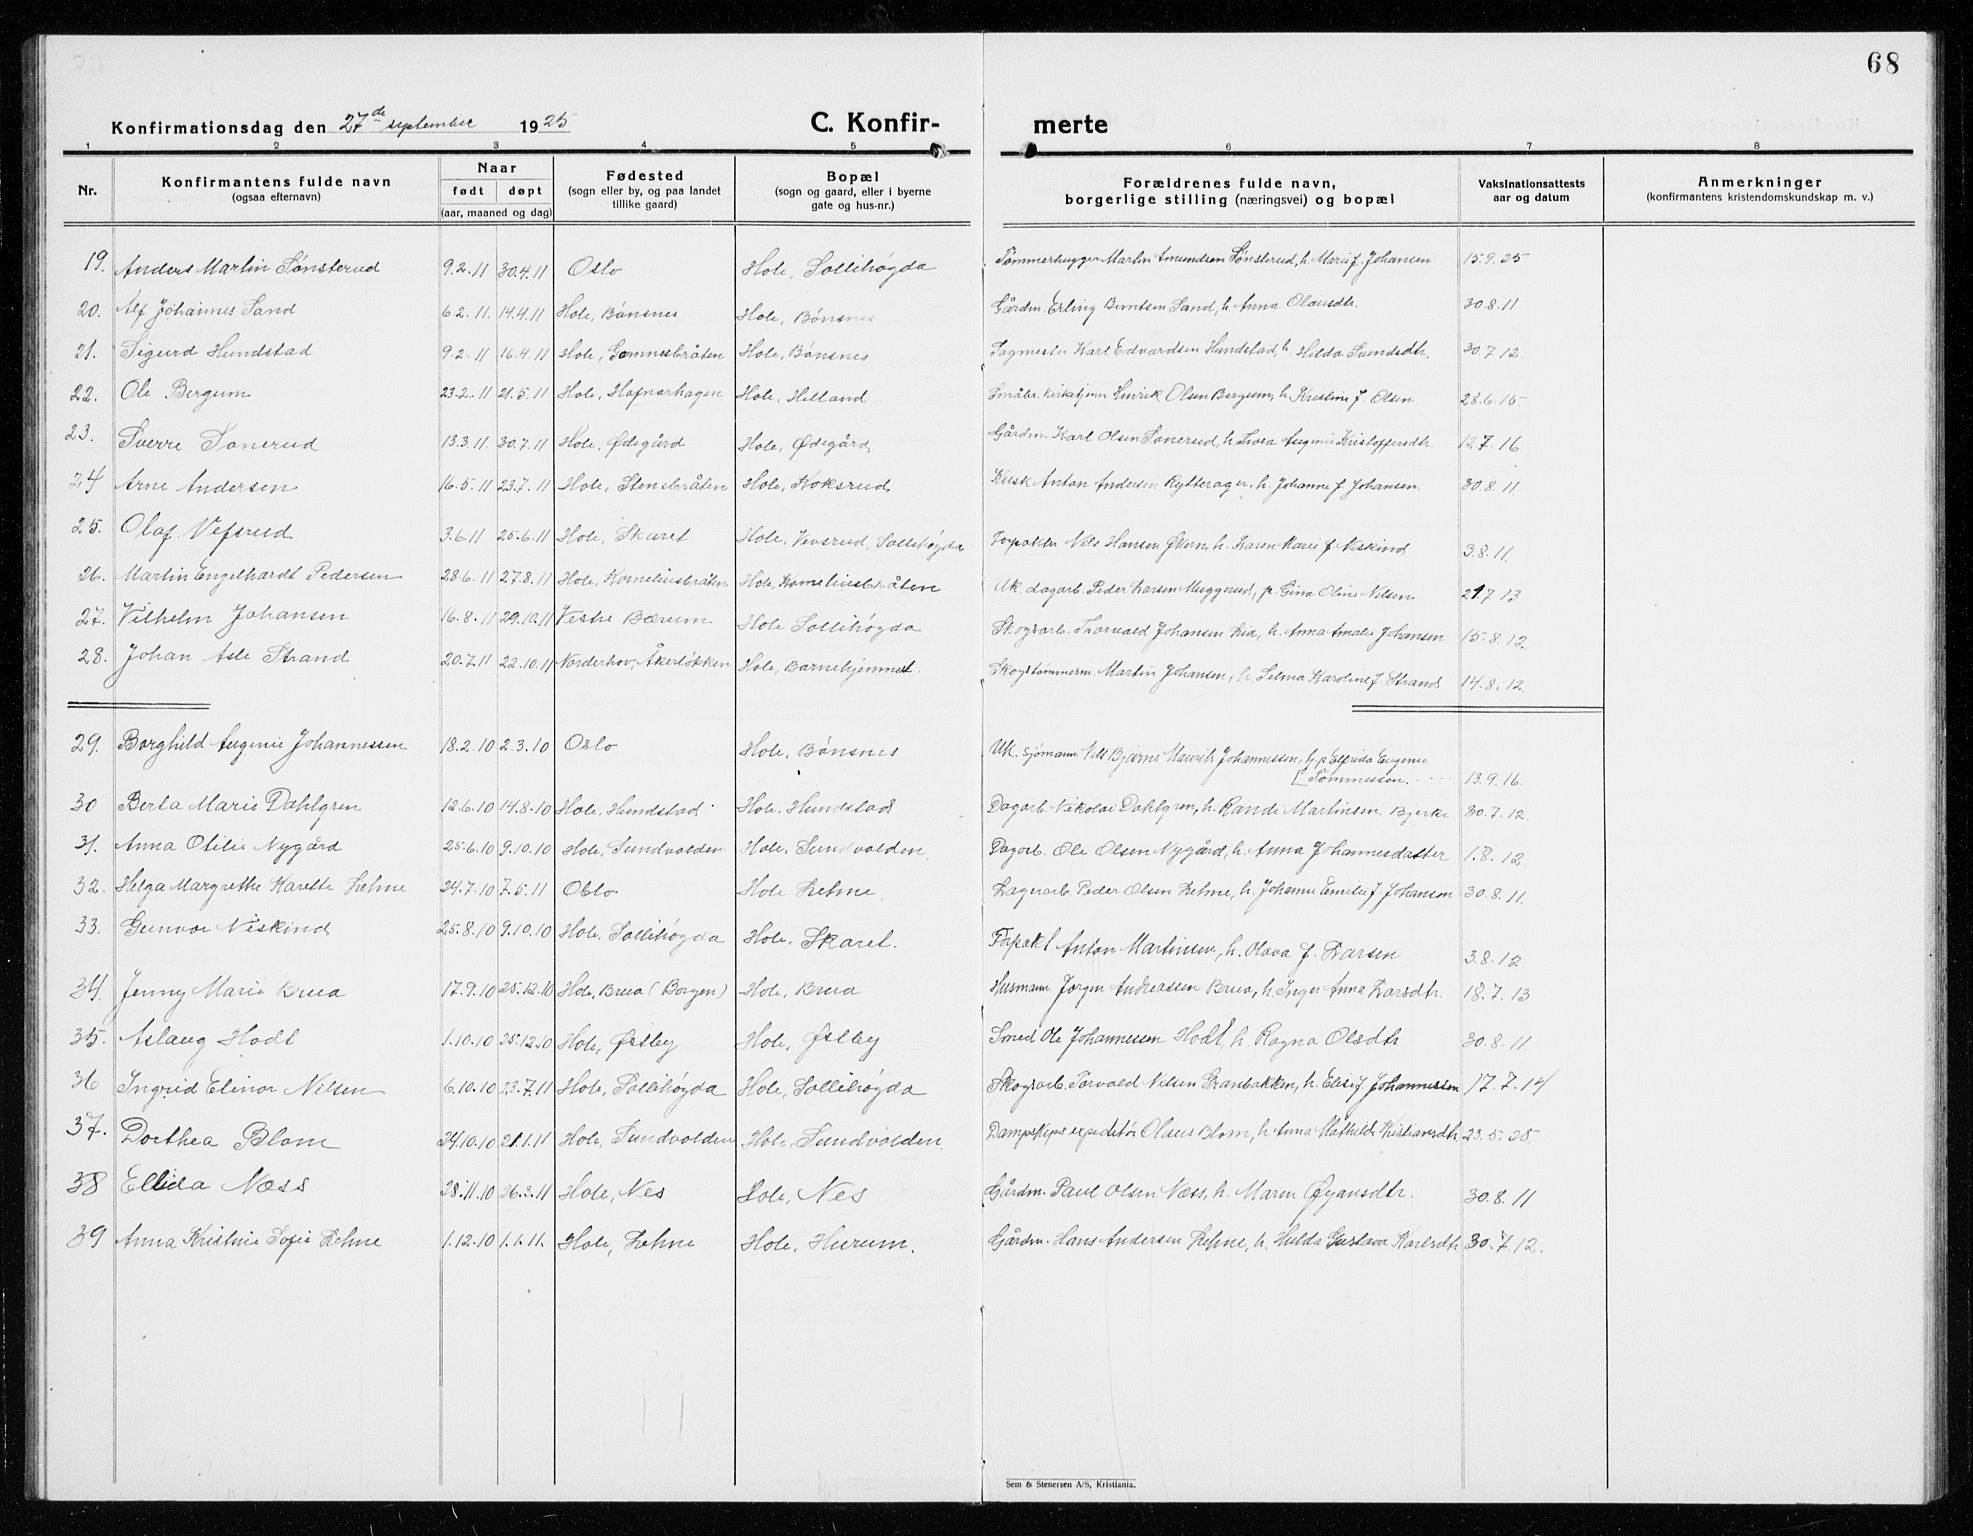 68
Konfirmationsdag den 27de september 1925 C. Konfir- merte
1 2 3 4 5 6 7 8
Nr. Konfirmantens fulde navn (ogsaa efternavn) Naar født døpt (aar, maaned og dag) Fødested (sogn eller by, og paa landet tillike gaard) Bopæl (sogn og gaard, eller i byerne gate og hus-nr.) Forældrenes fulde navn, borgerlige stilling (næringsvei) og bopæl Vaksinationsattests aar og datum Anmerkninger (konfirmantens kristendomskundskap m. v.)
19. Anders Martin Sønsterud 9.2.11 30.4.11 Oslo Hole, Sollihøgda Tømmerhugger Martin Amundsen Sønsterud, h. Marie f. Johansen 15.9.25
20. Alf Johannes Sand 6.2.11. 14.4.11 Hole, Bønsnes Hole, Bønsnes Gårdm. Erling Berntsen Sand, h. Anna Olausdtr. 30.8.11
21. Sigurd Hundstad 9.2.11 16.4.11 Hole, Gomnesbråten Hole, Bønsnes Sagmester Karl Edvardsen Hundstad, h. Hilda Svendsdtr. 30.7.12.
22. Ole Bergum 23.2.11 21.5.11 Hole, Hafnorhagen Hole, Helland Småbr. Kirketjener Hinrik Olsen Bergum, h. Kristine f. Olsen 28.6.15
23. Sverre Sonerud 13.3.11. 30.7.11 Hole, Ødegård Hole, Ødegård Gårdm. Karl Olsen Sonerud, h. Thora Augenie Kristoffersdtr. 12.7.16
24 Arne Andersen 16.5.11 23.7.11 Hole, Stensbråten Hole, Koksrud Kusk Anton Andersen Rytterager, h. Johanne f. Johansen. 30.8.11.
25. Olaf Vefsrud 3.6.11 25.6.11 Hole, Skaret Hole, Vevsrud, Sollihøgda Forpakter Nils Hansen Økern, h. Karen Marie f. Niskind 3.8.11.
26. Martin Engelhardt Pedersen 28.6.11 27.8.11 Hole, Korneliusbråten Hole, Korneliusbråten Uk. dagarb. Peder Larsen Muggerud, p. Gina Oline Nilsen 21.7 13
27. Vilhelm Johansen 16.8.11 29.10.11 Vestre Bærum Hole Sollihøgda Skogsarb. Thorvald Johansen Lia, h. Anna Amalie Johansen 15.8.12.
28. Johan Asle Strand 20.7.11 22.10.11 Norderhov, Åkerløkken Hole, Barnehjemmet. Skogstømmerm. Martin Johansen, h. Selma Karoline f. Strand 14.8.12.
29. Borghild Augenie Johannessen 18.2.10 2.3.10 Oslo Hole, Bønsnes Uk. sjømann Nils Bjarne Mauritz Johannessen, h. p. Elfrida Eugenie
[Tommessen. 13.9.16.
30 Berta Marie Dahlgren 12.6.10 14.8.10 Hole, Hundstad Hole, Hundstad Dagarb. Nikolai Dahlgren, h. Randi Martinsen Bjerke 30.7.12.
31. Anna Otilie Nygård 25.6.10 9.10.10 Hole, Sundvolden Hole, Sundvolden. Dagarb. Ole Olsen Nygård, h. Anna Johannesdatter 1.8.12.
32. Helga Margrethe Karette Lehne 24.7.10 7.5.11 Oslo Hole Lehne. Lagerarb. Peder Olsen Lehne, h. Johanne Emilie f. Johansen 30.8.11.
33. Gunvor Niskind 25.8.10 9.10.10 Hole, Sollihøgda Hole, Skaret. Forpakt Anton Martinsen, h. Olava f. Larsen 3.8.12.
34. Jenny Marie Krua 17.9.10 25.12.10 Hole, Brua (Borgen) Hole, Brua Husmann Jørgen Andreassen Brua, h. Inger Anna Larsdtr. 18.7.13
35. Aslaug Hodt 1.10.10 25.12.10 Hole, Østby Hole, Østby Smed Ole Johannessen Hodt, h. Ragna Olsdtr 30.8.11.
36 Ingrid Elinor Nilsen 6.10.10 23.7.11 Hole, Sollihøgda Hole, Sollihøgda Skogsarb. Torvald Nilsen Granbakken, h. Elise f. Johannessen 17.7.14
37. Dorthea Blom 24.10.10 21.1.11 Hole, Sundvolden Hole Sundvolden. Dampskipsexpeditør Olaus Blom, h. Anna Mathilde Kristiansdtr 23.5.25.
38 Ellida Næss 28.11.10 26.3.11 Hole, Nes Hole, Nes Gårdm. Paul Olsen Næss, h. Maren Øyansdtr. 30.8.11
39 Anna Kristine Sofie Lehne 1.12.10 1.1.11. Hole, Lehne Hole, Hurum. Gårdm. Hans Andersen Lehne, h. Hulda Gustava Karlsdtr 30.7.12.
Sem & Stenersen A/S, Kristiania.